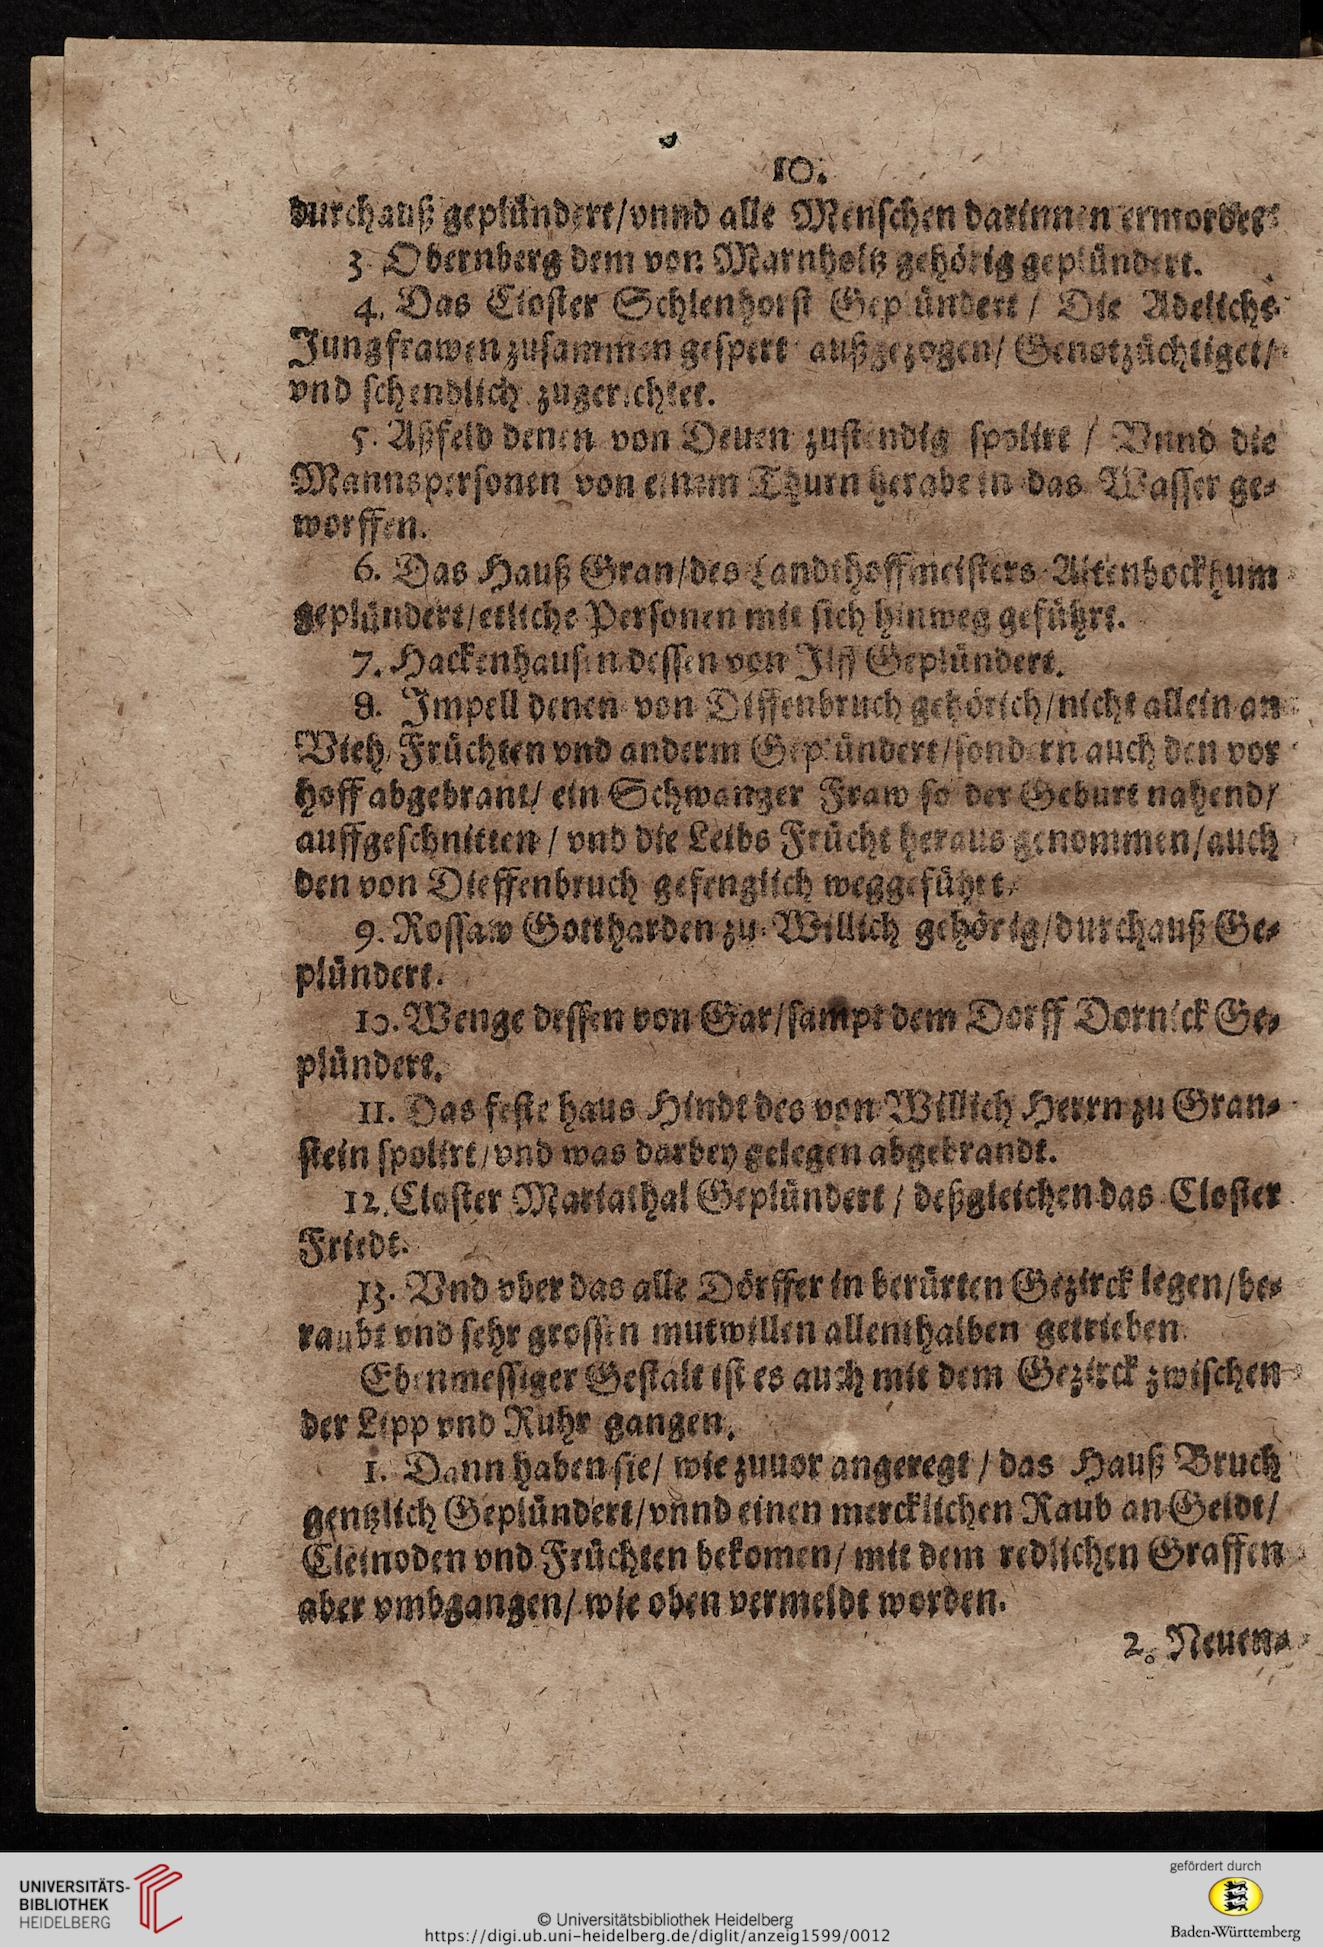 10.
durchauß geplündert/vnnd alle Menschen darinnen ermordet
3 Obernberg dem von Marnholtz gehörig geplündert.
4. Das Closter Schlenhorst Geplündert / Die Adeliche
Jungfrawen zusammen gespert außgezogen/ Genotzüchtiget/
vnd schendlich zugerichtet.
5. Aßfeld denen von Deuen zustendig spolirt / Vnnd die
Mannspersonen von einem Thurn herabe in das Wasser ge-
worffen.
6. Das Hauß Gran/des Landthoffmeisters Altenbockhum
geplündert/etliche Personen mit sich hinweg geführt.
7. Hackenhausen dessen von Ilff Geplündert.
8. Impell denen von Diffenbruch gehörich/nicht allein an
Vieh Früchten vnd anderm Geplündert/sondern auch den vor
hoff abgebrant/ ein Schwanger Fraw so der Geburt nahend/
auffgeschnitten / vnd die Leibs Frücht heraus genommen/auch
den von Dieffenbruch gefenglich weggeführt.
9. Rossaw Gottharden zu Willich gehörig/durchauß Ge-
plündert.
10. Wenge dessen von Gar/sampt dem Dorff Dornick Ge-
plündert.
11. Das feste haus Hindt des von Willich Herrn zu Gran-
stein spolirt/vnd was darbey gelegen abgebrandt.
12. Closter Mariathal Geplündert / deßgleichen das Closter
Friedt.
13. Vnd vber das alle Dörffer in berürten Gezirck legen/be-
raubt vnd sehr grossen mutwillen allenthalben getrieben
Ebenmessiger Gestalt ist es auch mit dem Gezirck zwischen
der Lipp vnd Ruhr gangen.
1. Dann haben sie/ wie zuuor angeregt / das Hauß Bruch
gentzlich Geplündert/vnnd einen mercklichen Raub an Geldt/
Cleinoden vnd Früchten bekomen/ mit dem redlichen Graffen
aber vmbgangen/ wie oben vermeldt worden.
2. Neuen-
UNIVERSITÄTS-
BIBLIOTHEK
HEIDELBERG
© Universitätsbibliothek Heidelberg
https://digi.ub.uni-heidelberg.de/diglit/anzeig1599/0012
gefördert durch
Baden-Württemberg